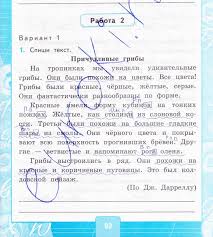 Работа 2
Вариант 1
1. Спиши текст.
Причудливые грибы
На тропинках мы увидели удивительные
грибы. Они были похожи на цветы. Все цвета!
Грибы были красные, чёрные, жёлтые, серые.
Они фантастически разнообразны по форме.
Красные имели форму кубиков на тонких
ножках. Жёлтые, как столики из слоновой кос-
ти. Третьи были похожи на большие гладкие
шары из смолы. Они чёрного цвета и покры-
вают всю поверхность прогнивших брёвен. Дру-
гие — ветвистые и напоминают рога оленя.
Грибы выстроились в ряд. Они похожи на
красные и коричневые пуговицы. Это был кол-
довской пейзаж.
(По Дж. Дарреллу)